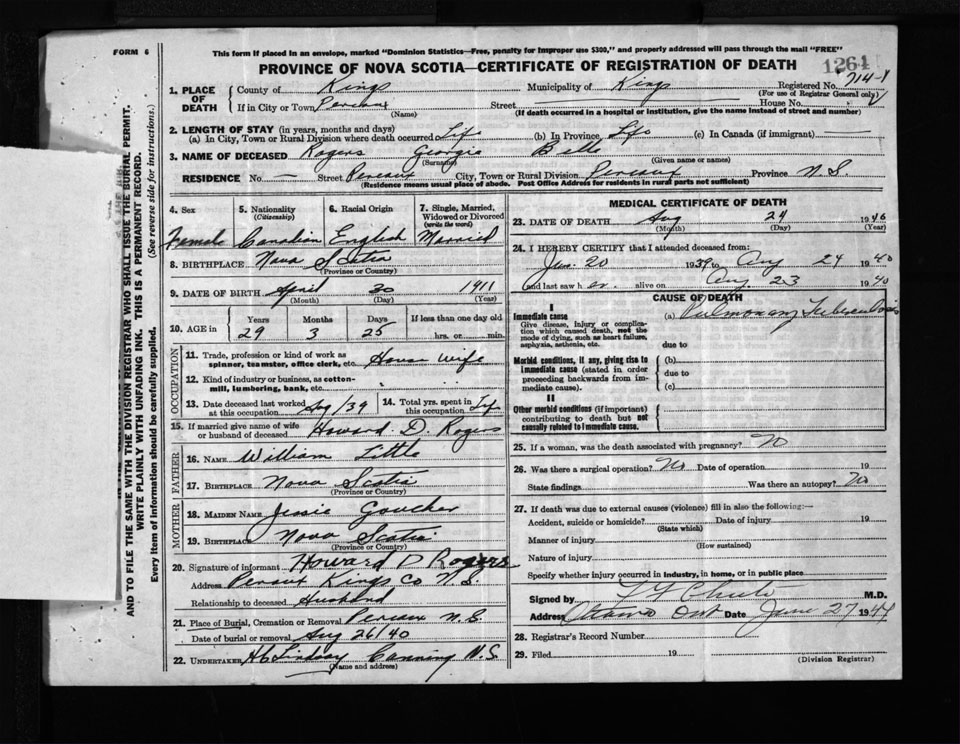 FORM 6
This form if placed in an envelope, marked "Dominion Statistics—Free, penalty for improper use $300," and properly addressed will pass through the mail "FREE"
PROVINCE OF NOVA SCOTIA—CERTIFICATE OF REGISTRATION OF DEATH
1264
1. PLACE OF DEATH
County of Kings Municipality of Kings Registered No. 714-
(For use of Registrar General only)
If in City or Town Street House No.
(Name) (If death occurred in a hospital or institution, give the name instead of street and number)
2. LENGTH OF STAY (in years, months and days)
(a) In City, Town or Rural Division where death occurred Life (b) In Province, Life (c) In Canada (if immigrant)
3. NAME OF DECEASED Rogers Georgia Bella
(Surname) (Given name or names)
RESIDENCE No. — Street Pereaux City, Town or Rural Division Pereaux Province N.S.
(Residence means usual place of abode. Post Office Address for residents in rural parts not sufficient)
4. Sex Female
5. Nationality (Citizenship) Canadian
6. Racial Origin English
7. Single, Married, Widowed or Divorced (write the word) Married
8. BIRTHPLACE Nova Scotia
(Province or Country)
9. DATE OF BIRTH April 30 1911
(Month) (Day) (Year)
10. AGE in Years Months Days If less than one day old
29 3 25 hrs. or min.
OCCUPATION
11. Trade, profession or kind of work as spinner, teamster, office clerk, etc. House Wife
12. Kind of industry or business, as cotton-mill, lumbering, bank, etc.
13. Date deceased last worked at this occupation Aug/39
14. Total yrs. spent in this occupation Life
15. If married give name of wife or husband of deceased Howard D. Rogers
FATHER
16. NAME William Little
17. BIRTHPLACE Nova Scotia
(Province or Country)
MOTHER
18. MAIDEN NAME Jessie Goucher
19. BIRTHPLACE Nova Scotia
(Province or Country)
20. Signature of informant Howard D Rogers
Address Kings Co N.S.
Relationship to deceased Husband
21. Place of Burial, Cremation or Removal Pereaux N.S.
Date of burial or removal Aug 26/40
22. UNDERTAKER Lindsay Canning N.S.
(Name and address)
MEDICAL CERTIFICATE OF DEATH
23. DATE OF DEATH Aug 24 1940
(Month) (Day) (Year)
24. I HEREBY CERTIFY that I attended deceased from:
20 1939 to Aug 24 1940
and last saw her alive on Aug. 23 1940
CAUSE OF DEATH
I
Immediate cause (a) Pulmonary Tuberculosis
Give disease, injury or complication which caused death, not the mode of dying, such as heart failure, asphyxia, asthenia, etc.
due to
Morbid conditions, if any, giving rise to immediate cause (stated in order proceeding backwards from immediate cause).
(b)
due to
(c)
II
Other morbid conditions (if important) contributing to death but not causally related to immediate cause.
25. If a woman, was the death associated with pregnancy? No
26. Was there a surgical operation? No Date of operation 19
State findings Was there an autopsy? No
27. If death was due to external causes (violence) fill in also the following:—
Accident, suicide or homicide? Date of injury 19
(State which)
Manner of injury
(How sustained)
Nature of injury
Specify whether injury occurred in industry, in home, or in public place
Signed by M.D.
Address Ont Date June 27 1944
28. Registrar's Record Number
29. Filed 19
(Division Registrar)
AND TO FILE THE SAME WITH THE DIVISION REGISTRAR WHO SHALL ISSUE THE BURIAL PERMIT.
WRITE PLAINLY WITH UNFADING INK. THIS IS A PERMANENT RECORD.
Every item of information should be carefully supplied. (See reverse side for instructions.)